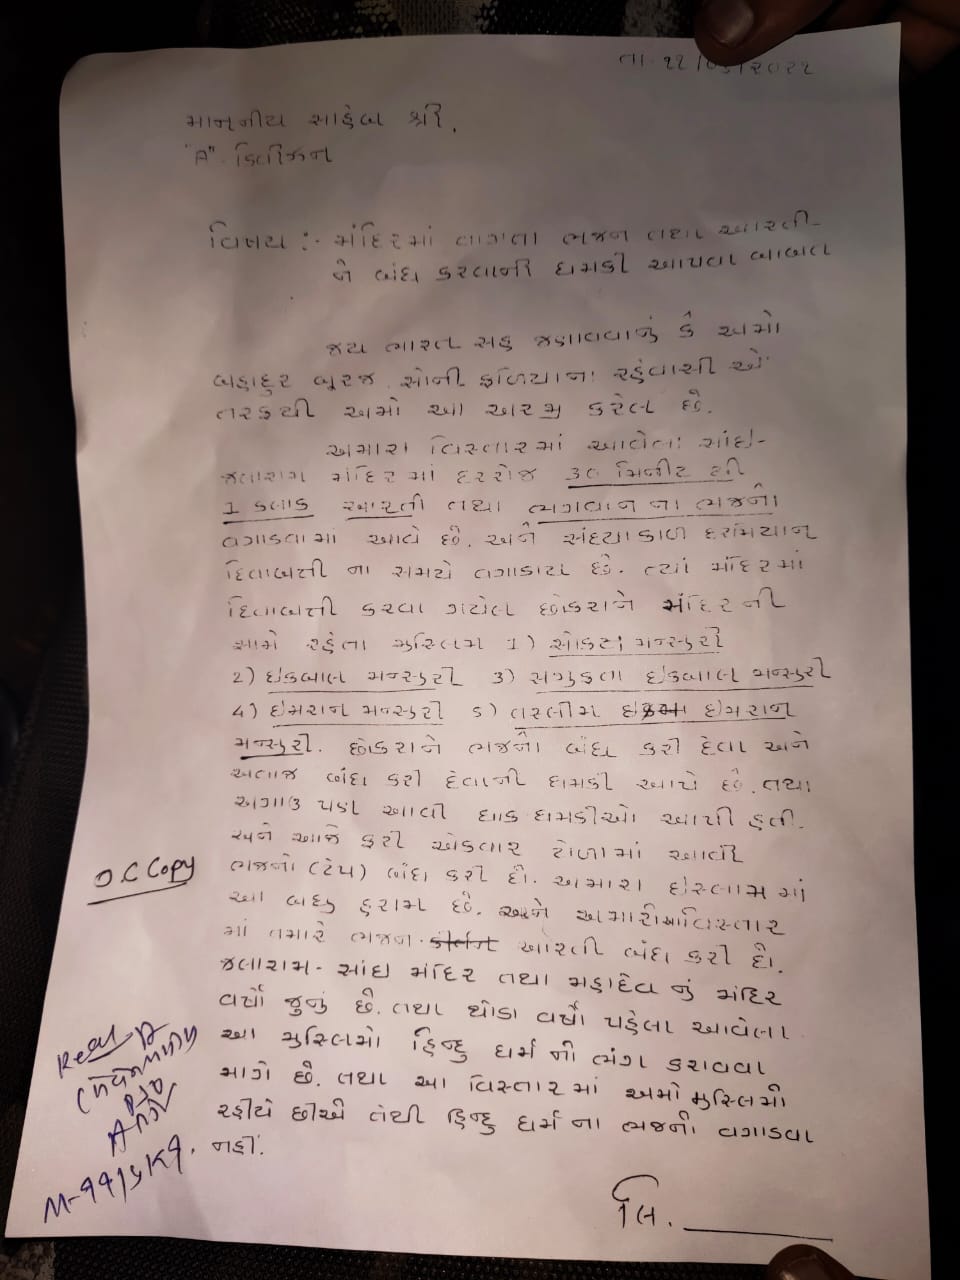 તા. ૧૧/05/૨૦૨૨
માનનીય સાહેબ શ્રી,
"A" ડિવીઝન
વિષય :- મંદિરમાં વાગતા ભજન તથા આરતી-
ને બંધ કરવાની ધમકી આપવા બાબત
જય ભારત સહ જણાવવાનું કે અમો
બહાદુર બૂરજ સોની ફળિયાના રહેવાસી ઓ
તરફથી અમો આ અરજી કરેલ છે.
અમારા વિસ્તારમાં આવેલા સાંઇ-
જલારામ મંદિર માં દરરોજ 30 મિનીટ થી
1 કલાક આરતી તથા ભગવાન ના ભજનો
વગાડવામાં આવે છે. અને સંધ્યાકાળ દરમિયાન
દિવાબત્તી ના સમયે વગાડાય છે. ત્યાં મંદિરમાં
દિવાબત્તી કરવા ગયેલ છોકરાને મંદિરની
સામે રહેતા મુસ્લિમ 1) મન્સુરી
2) ઇકબાલ મન્સુરી 3) ઇકબાલ મન્સુરી
4) ઇમરાન મન્સુરી 5) તસ્લીમ ઇમરાન
મન્સુરી. છોકરાને ભજનો બંધ કરી દેવા અને
અવાજ બંધ કરી દેવાની ધમકી આપે છે. તથા
અગાઉ પણ આવી ધાક ધમકીઓ આપી હતી.
અને આજે ફરી એકવાર ટોળામાં આવી
ભજનો (ટેપ) બંધ કરી દો. અમારા ઇસ્લામ માં
આ બધુ હરામ છે. અને અમારી વિસ્તાર
માં તમારે ભજન આરતી બંધ કરી દો.
જલારામ - સાંઇ મંદિર તથા મહાદેવ નું મંદિર
વર્ષો જુનું છે. તથા થોડા વર્ષો પહેલા આવેલા
આ મુસ્લિમો હિન્દુ ધર્મ નો ભંગ કરાવવા
માગે છે. તથા આ વિસ્તાર માં અમો મુસ્લિમો
રહીયે છીએ તેથી હિન્દુ ધર્મ ના ભજનો વગાડવા
નહીં.
O.C Copy
લિ.